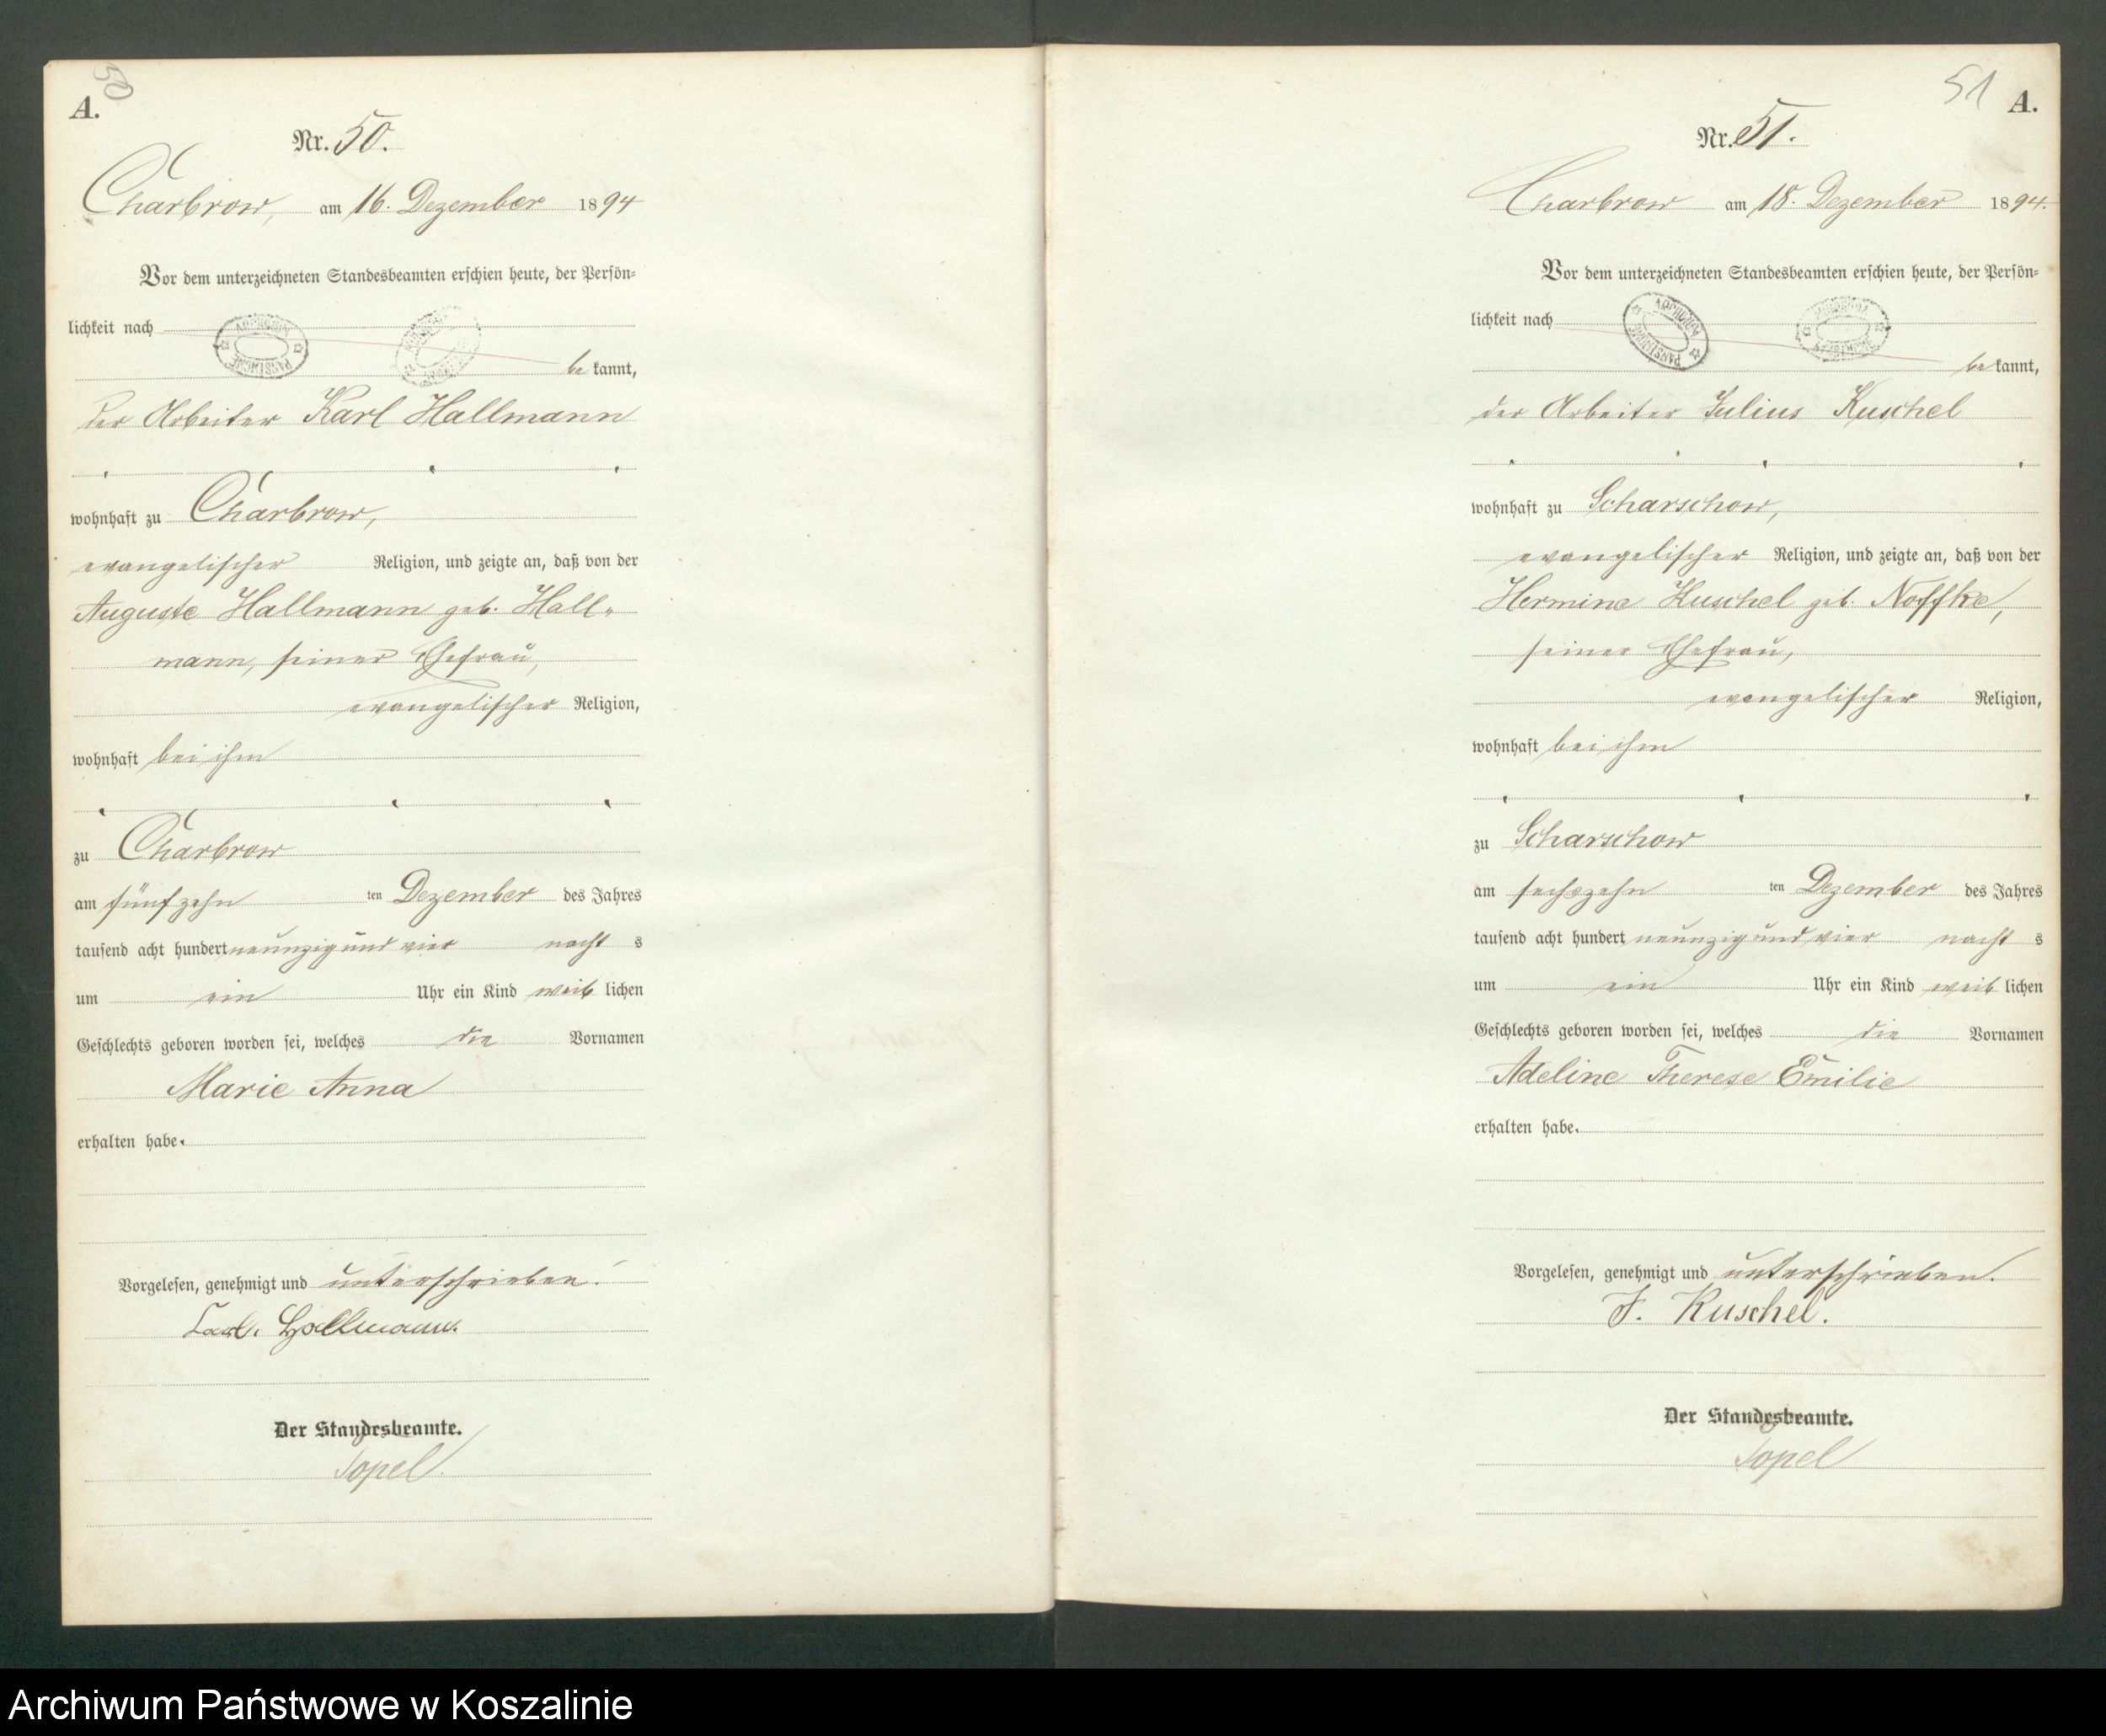 50
A.
Nr. 50.
Charbrow, am 16. Dezember 1894
Vor dem unterzeichneten Standesbeamten erschien heute, der Persön-
lichkeit nach
ARCHIWUM PAŃSTWOWE
be kannt,
der Arbeiter Karl Hallmann
wohnhaft zu Charbrow,
evangelischer Religion, und zeigte an, daß von der
Auguste Hallmann geb. Hall-
mann, seiner Ehefrau,
evangelischer Religion,
wohnhaft bei ihm
zu Charbrow
am fünfzehn ten Dezember des Jahres
tausend acht hundert neunzig und vier nacht s
um ein Uhr ein Kind weib lichen
Geschlechts geboren worden sei, welches die Vornamen
Marie Anna
erhalten habe.
Vorgelesen, genehmigt und unterschrieben.
Carl. Hallmann.
Der Standesbeamte.
Sopel.
51
A.
Nr. 51.
Charbrow am 18. Dezember 1894.
Vor dem unterzeichneten Standesbeamten erschien heute, der Persön-
lichkeit nach
ARCHIWUM PAŃSTWOWE
be kannt,
der Arbeiter Julius Kuschel
wohnhaft zu Scharschow,
evangelischer Religion, und zeigte an, daß von der
Hermine Kuschel geb. Noffke,
seiner Ehefrau,
evangelischer Religion,
wohnhaft bei ihm
zu Scharschow
am sechszehn ten Dezember des Jahres
tausend acht hundert neunzig und vier nacht s
um ein Uhr ein Kind weib lichen
Geschlechts geboren worden sei, welches die Vornamen
Adeline Therese Emilie
erhalten habe.
Vorgelesen, genehmigt und unterschrieben.
J. Kuschel.
Der Standesbeamte.
Sopel
Archiwum Państwowe w Koszalinie